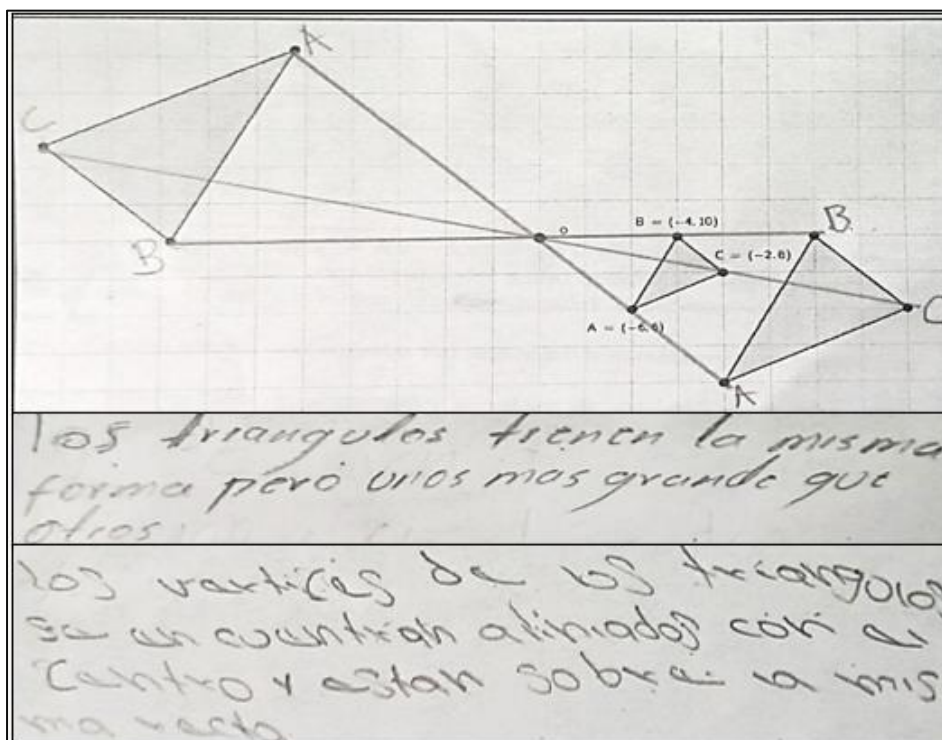 A
C
B
o
B = (-4,10)
B
C = (-2,8)
C
A = (-6,6)
A
los triangulos tienen la misma
forma pero unos mas grande que
otros.
los vertices de los triangulos
se en cuentran aliniados con el
Centro y estan sobre la mis
ma recta